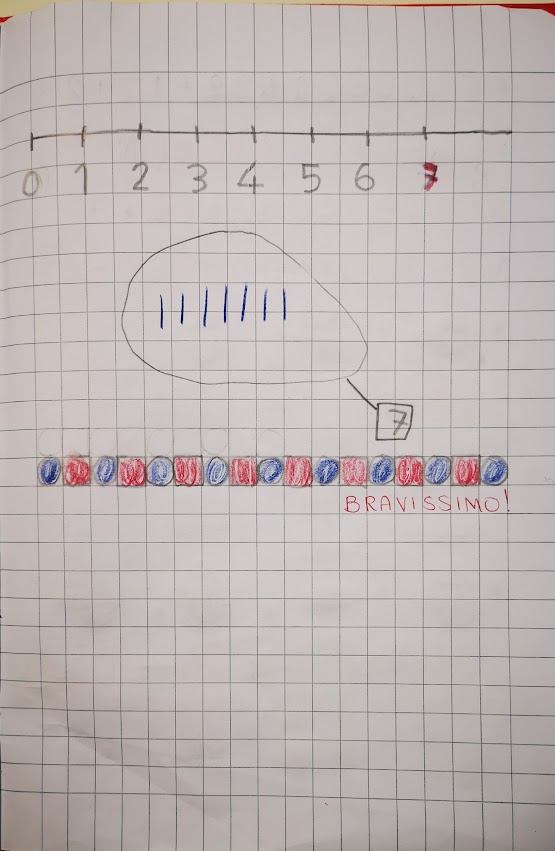 0 1 2 3 4 5 6 7
7
BRAVISSIMO!